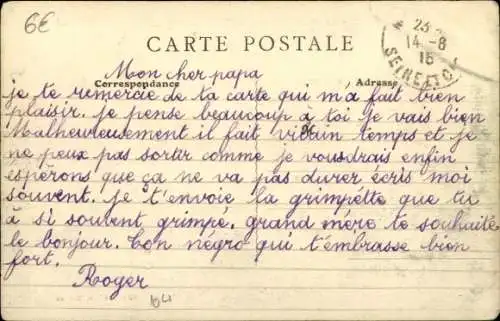 6€
23
14-8
15
SEINE-ET-O
CARTE POSTALE
Mon cher papa
Correspondance
Adresse
je te remercie de ta carte qui m'a fait bien
plaisir. je pense beaucoup à toi je vais bien
Malheureusement il fait vilain temps et je
ne peux pas sortir comme je vousdrais enfin
esperons que ça ne va pas durer écris moi
souvent. je t'envoie la grimpétte que tu
à si souvent grimpé. grand mére te souhaite
le bonjour. Ton négro qui t'embrasse bien
fort.
Roger